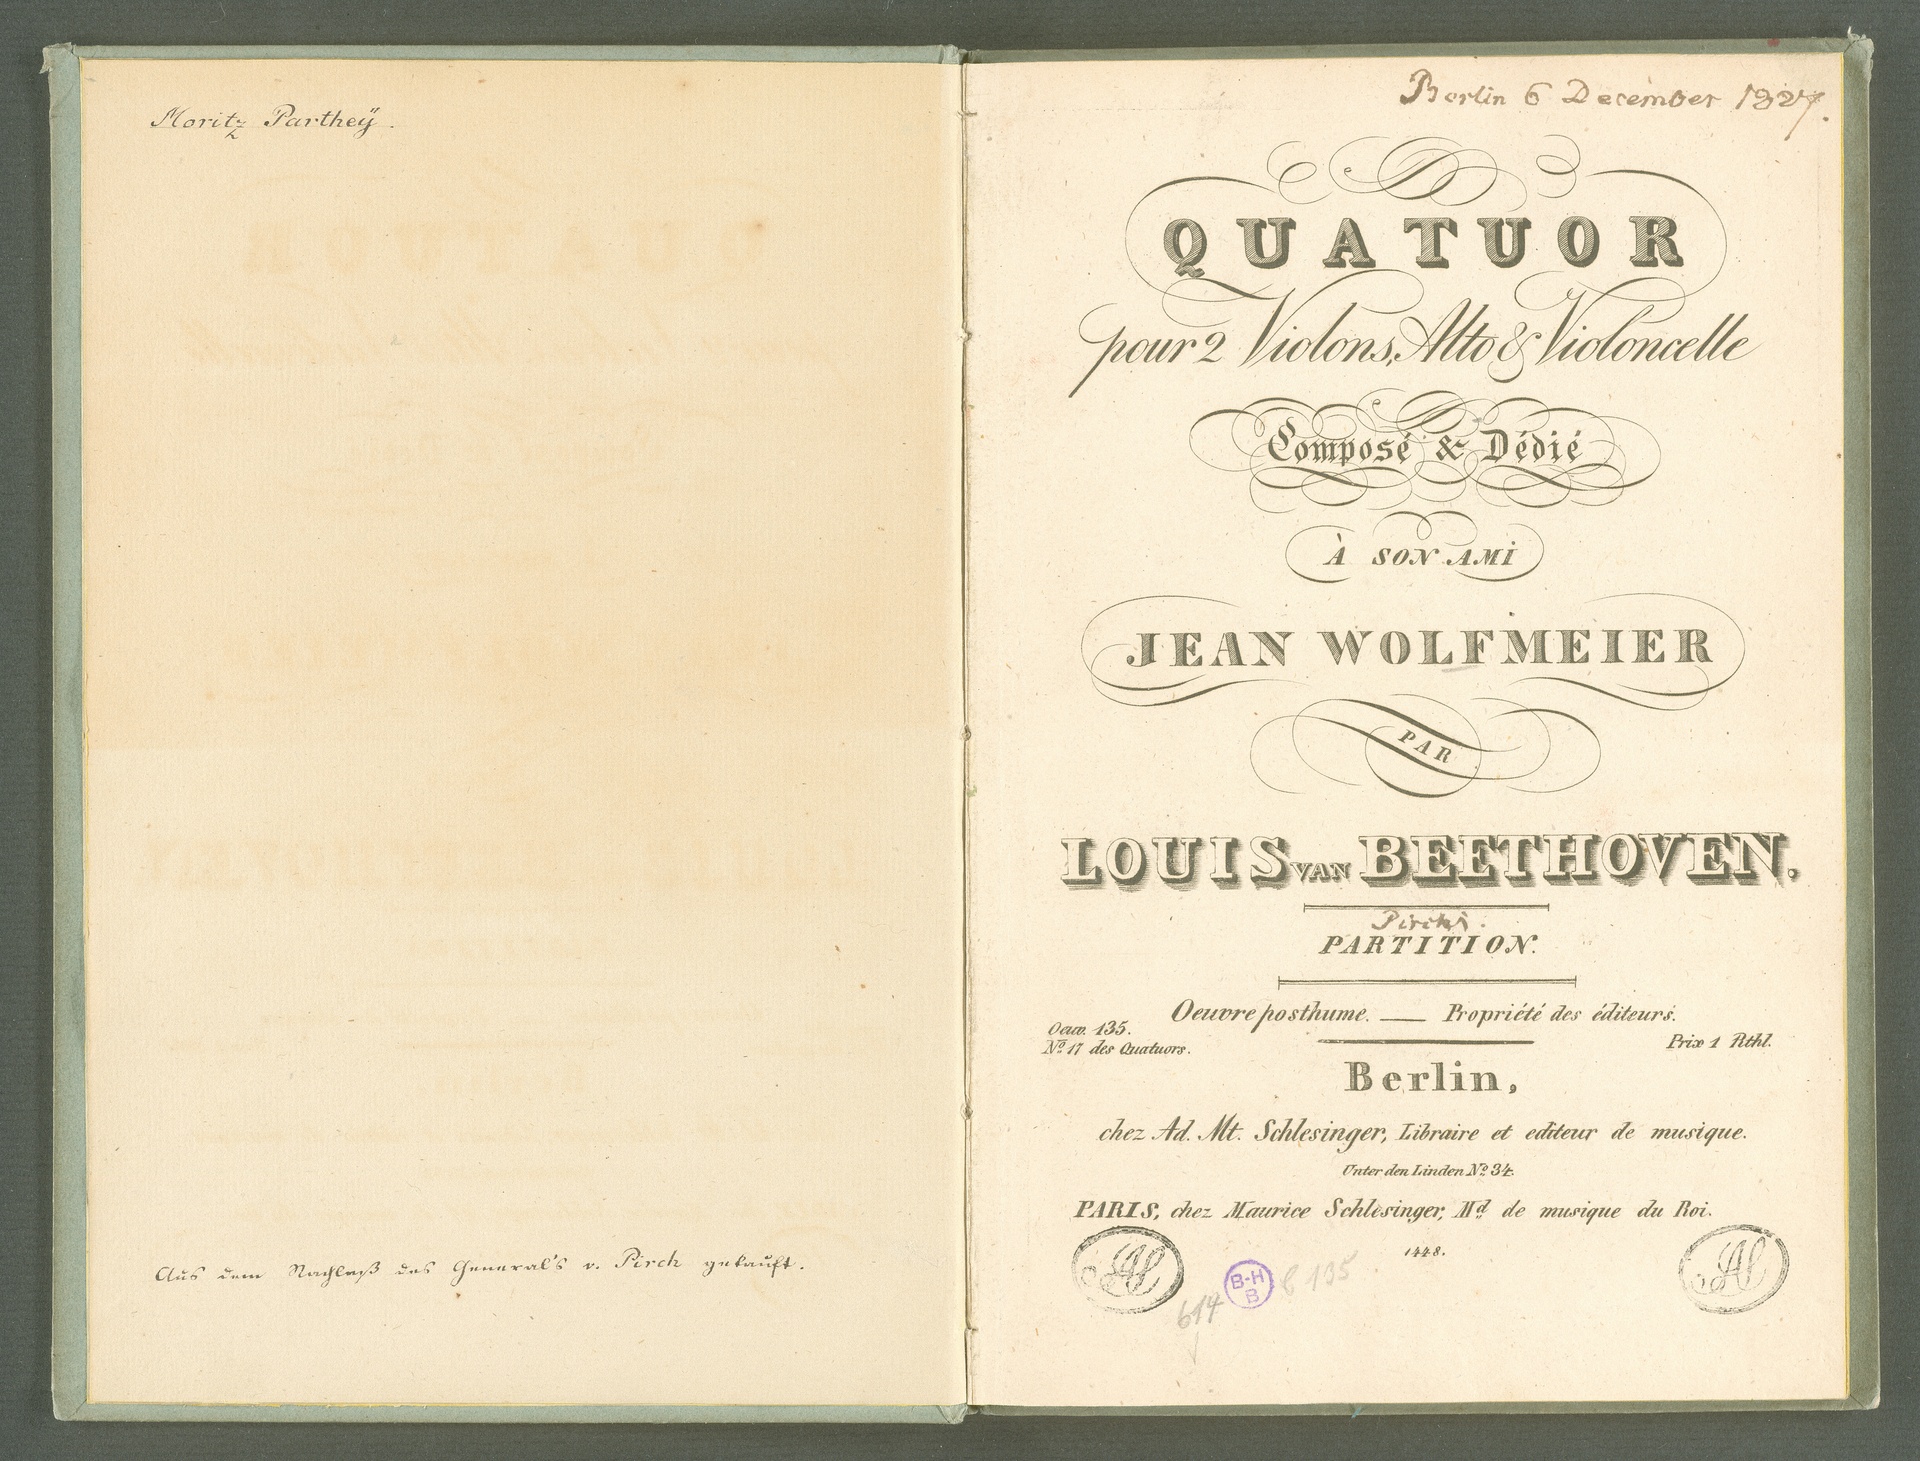 Moritz Partheÿ.
Aus dem Nachlaß des General's v. Pirch gekauft.
Berlin 6 December 1827.
QUATUOR
pour 2 Violons, Alto & Violoncelle
Composé & Dédié
À SON AMI
JEAN WOLFMEIER
PAR
LOUIS VAN BEETHOVEN.
PARTITION.
Oeuvre posthume. — Propriété des éditeurs.
Oeuv. 135.
No. 17 des Quatuors.
Prix 1 Rthl.
Berlin,
chez Ad. Mt. Schlesinger, Libraire et editeur de musique.
Unter den Linden No. 34.
PARIS, chez Maurice Schlesinger, Md. de musique du Roi.
1448.
B-H
B
C 135
614